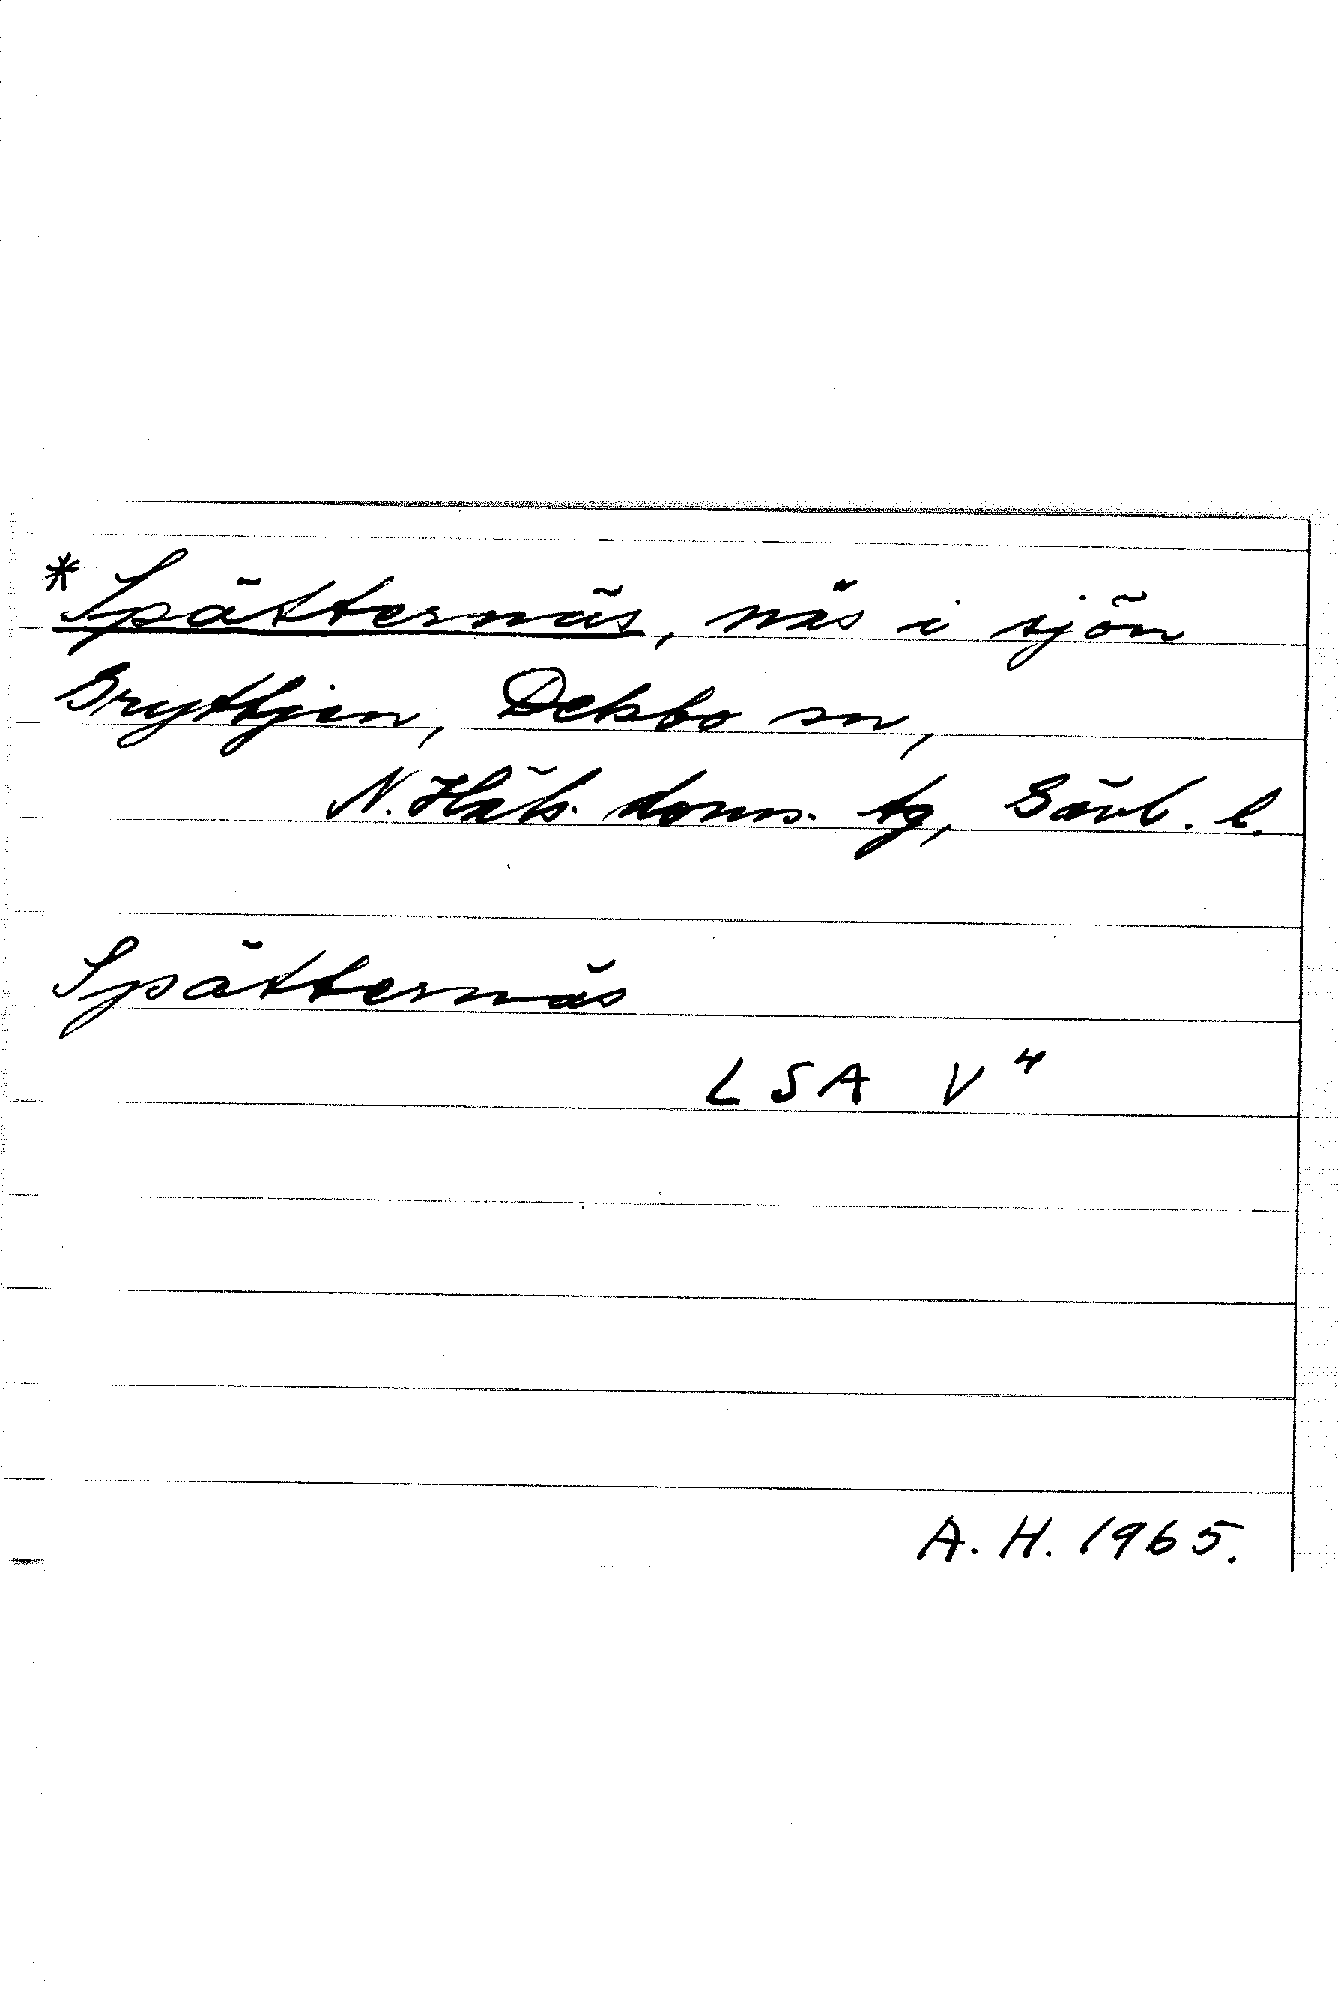 *Spätternäs, näs i sjön
Gryttjen, Delsbo sn,
N. Häls. doms. tg, Gävl. l.
Spätternäs
LSA V⁴
A. H. 1965.